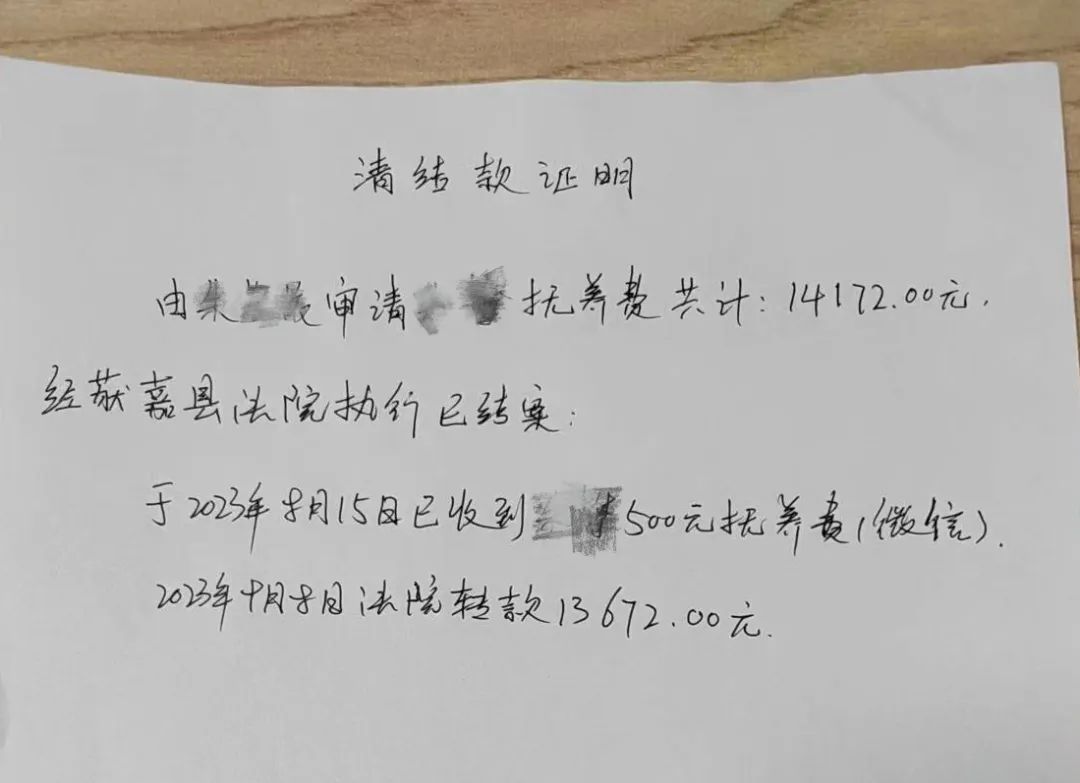 清结款证明
由朱审请抚养费共计:14172.00元.
经获嘉县法院执行已结案:
于2023年8月15日已收到500元抚养费(微信).
2023年9月8日法院转款13672.00元.